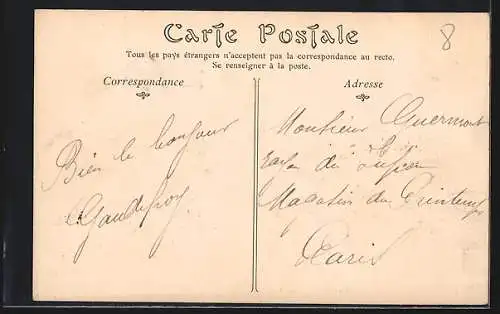 Carte Postale
Tous les pays étrangers n'acceptent pas la correspondance au recto.
Se renseigner à la poste.
Correspondance
Adresse
8
Bien le bonjour
Gaudefroy
Monsieur Guermont
rayon de
Magasin du Printemps
Paris